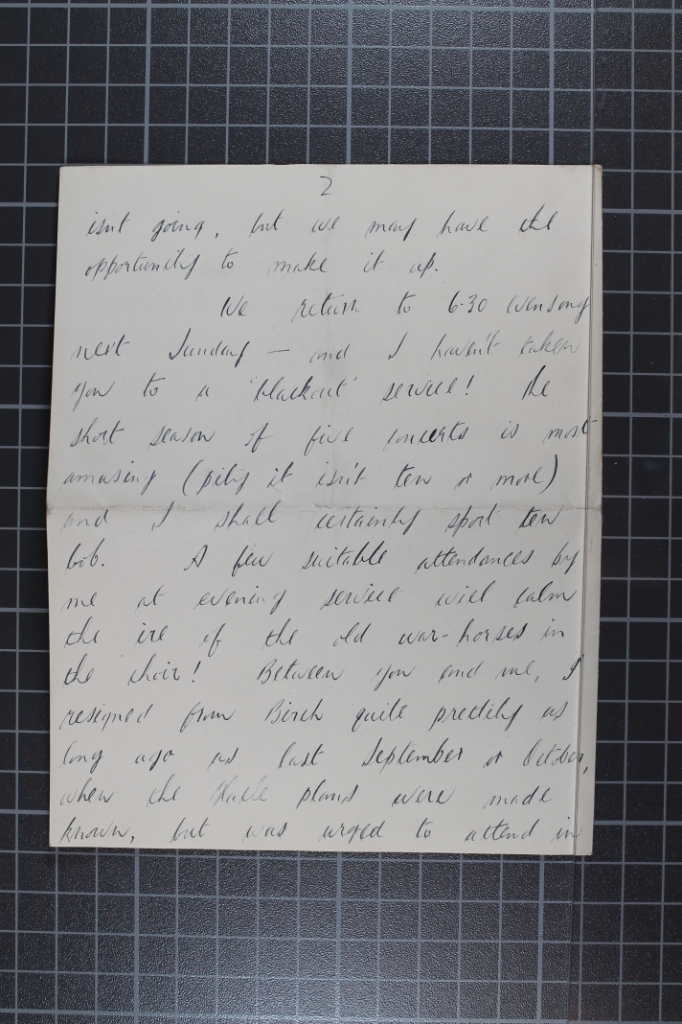 2
isnt going, but we may have the
opportunity to make it up.
We return to 6.30 evensong
next Sunday — and I haven't taken
you to a 'blackout' service! The
short season of five concerts is most
amusing (pity it isn't ten or more)
and I shall certainly sport ten
bob. A few suitable attendances by
me at evening service will calm
the ire of the old war-horses in
the choir! Between you and me, I
resigned from Birch quite prettily as
long ago as last September or October,
when the plans were made
known, but was urged to attend in